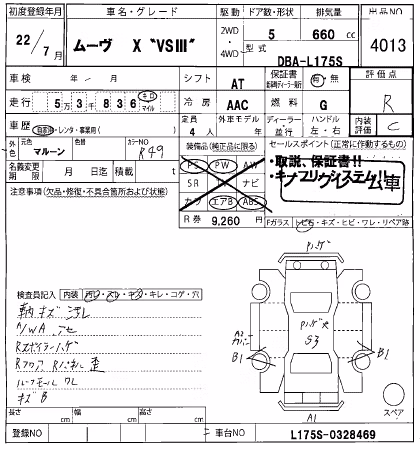 初度登録年月 車名・グレード 駆動 ドア数・形状 排気量 出品NO
22/7月 ムーヴ X "VSⅢ" 2WD・4WD 5 660 cc 4013
型式 DBA-L175S
車検 年 月 シフト AT 保証書 有・無 評価点
走行 5万3千836 キロ マイル 冷房 AAC 燃料 G R
車歴 自家用・レンタ・事業用( ) 定員 4人 外車モデル年 ディーラー・並行 ハンドル 左・右 内装評価 C
外色 元色 マルーン 色替 カラーNO R49 装備品(純正品に限る) セールスポイント(正常に作動するもの)
名義変更期限 月 日迄 積載 t PS PW AW ・取説、保証書!!
注意事項(欠品・修復・不具合箇所および状態) SR 革 ナビ ・キーフリーシステム!!
クレーム車
カワ エアB ABS
R券 9,260円 Fガラス トビ石・キズ・ヒビ・ワレ・リペア跡
ハゲ
検査員記入 内装 汚レ・スレ・キズ・キレ・コゲ・穴
鞘 キズ 汚レ
A/WA アセ
Rスポイラーハゲ
Rフロア Rパネル 歪
ルーフモール ワレ
キズ B
A2
B1 B1
S3
A1
スペア
長さ cm 幅 cm 高さ cm
登録NO 車台NO L175S-0328469